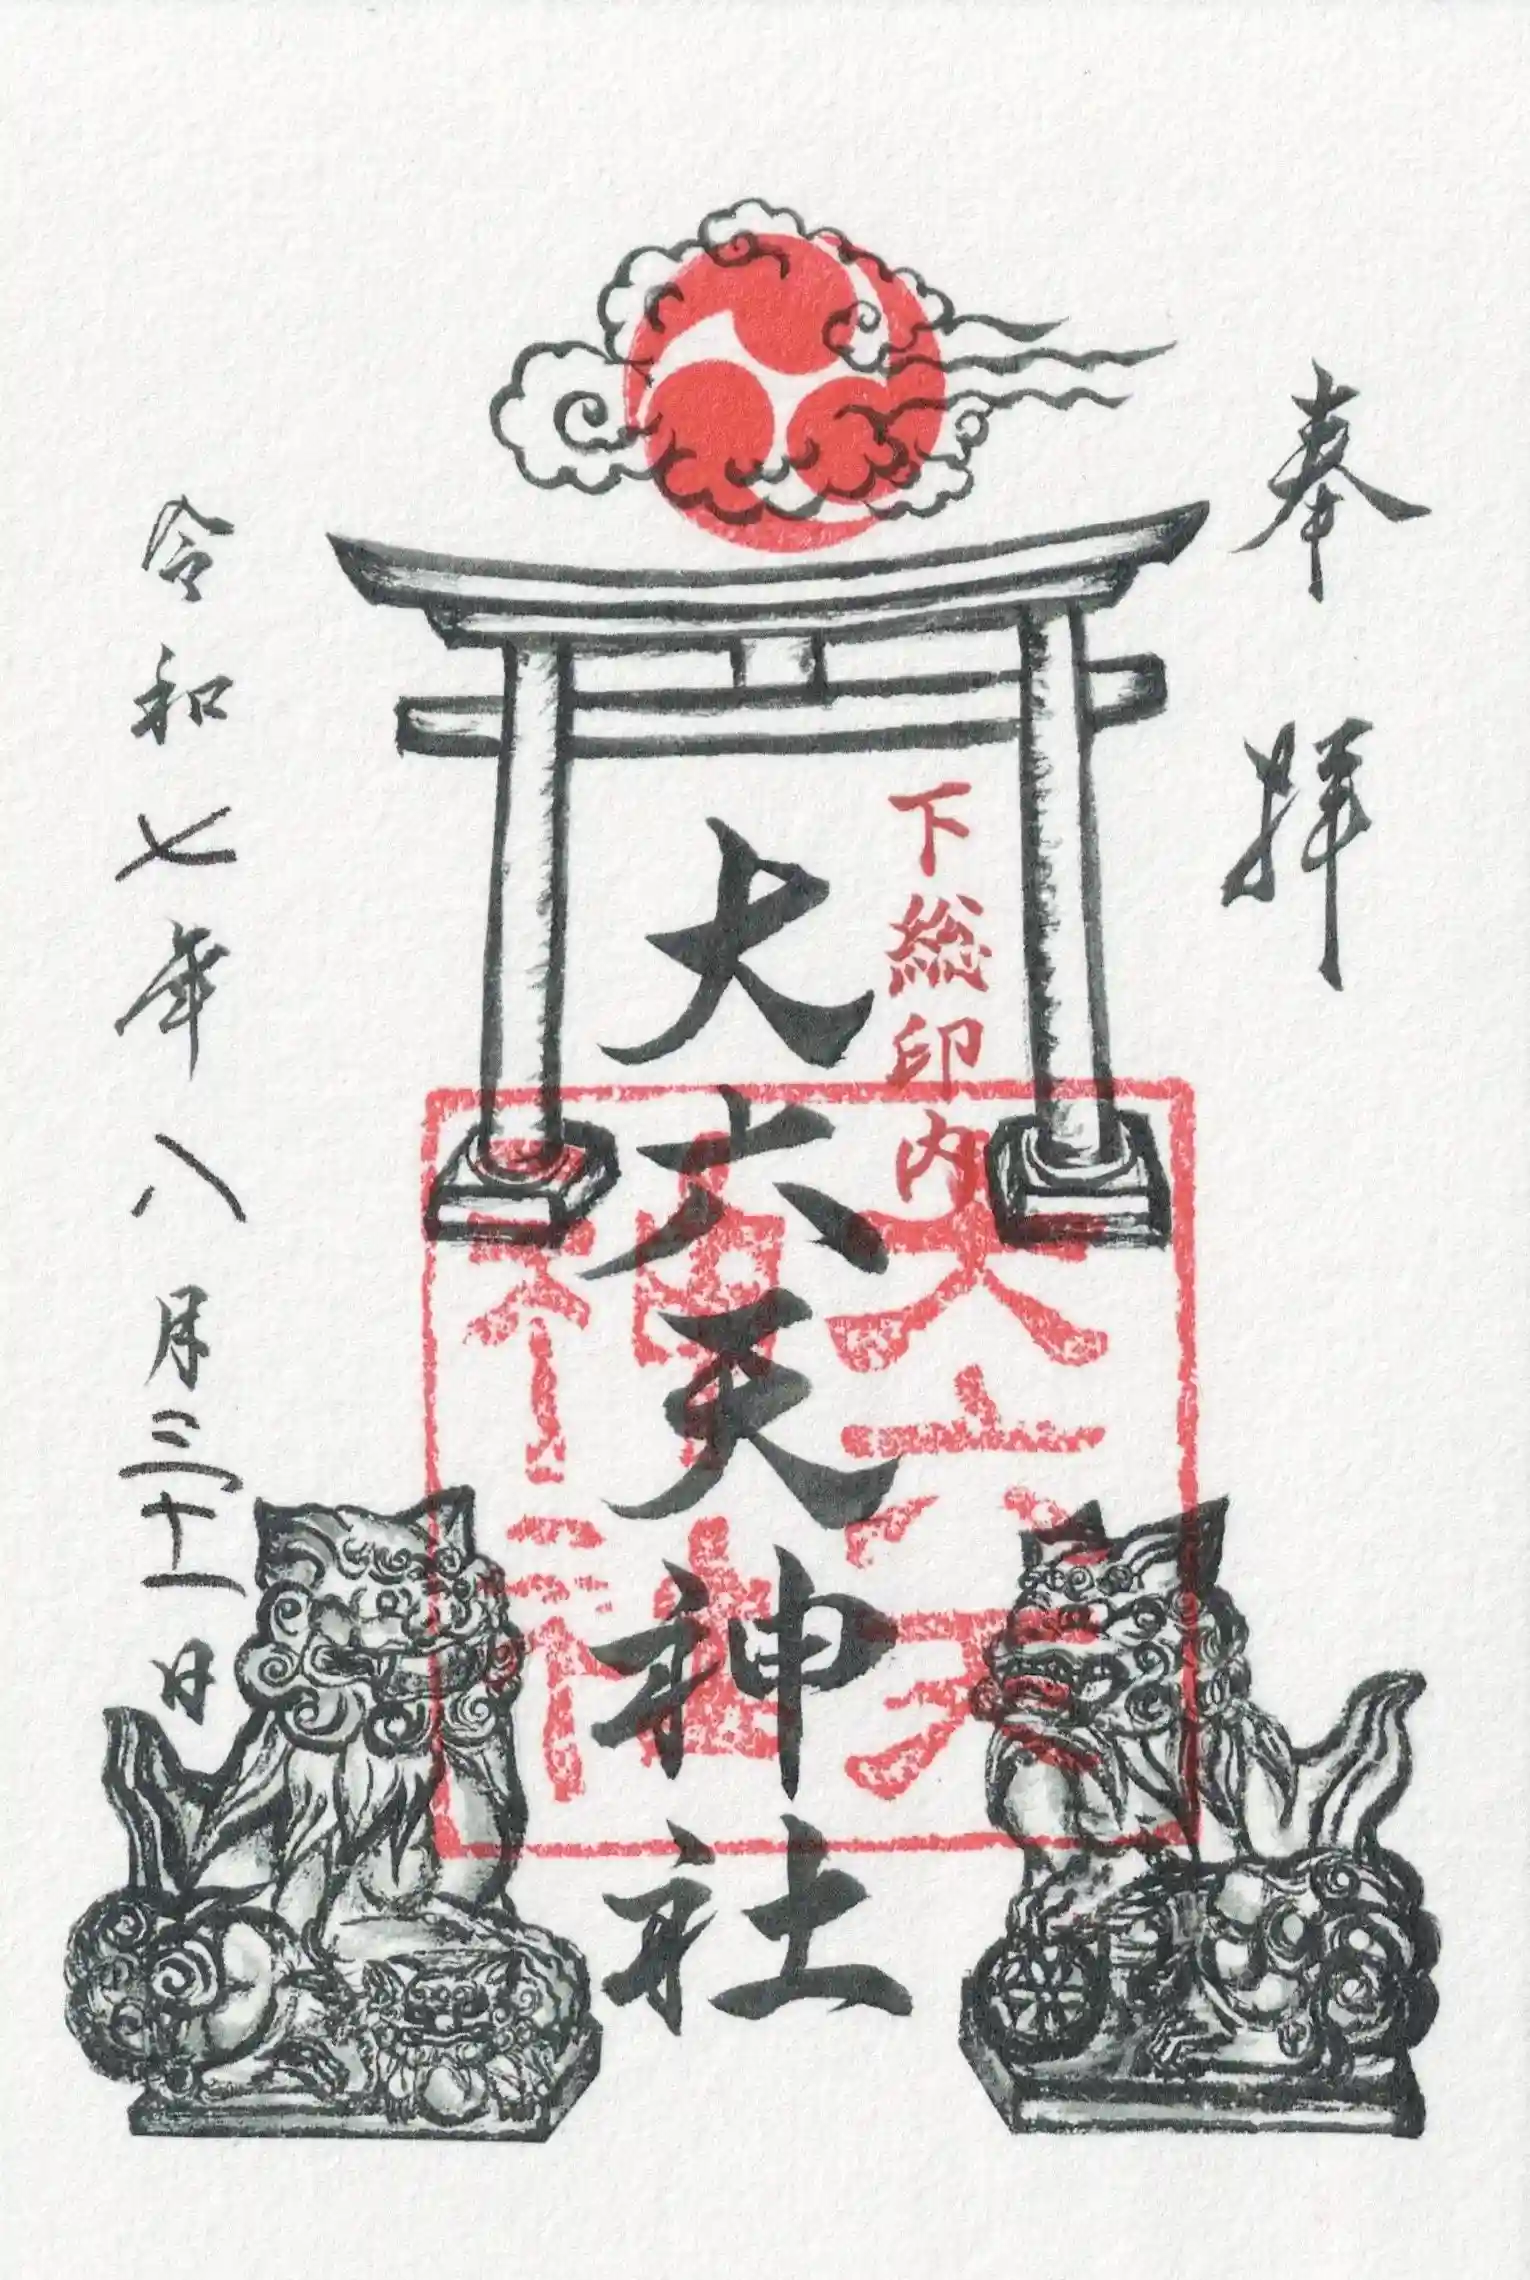 奉拝
下総印内
大六天神社
大六天
神社
令和七年八月三十一日